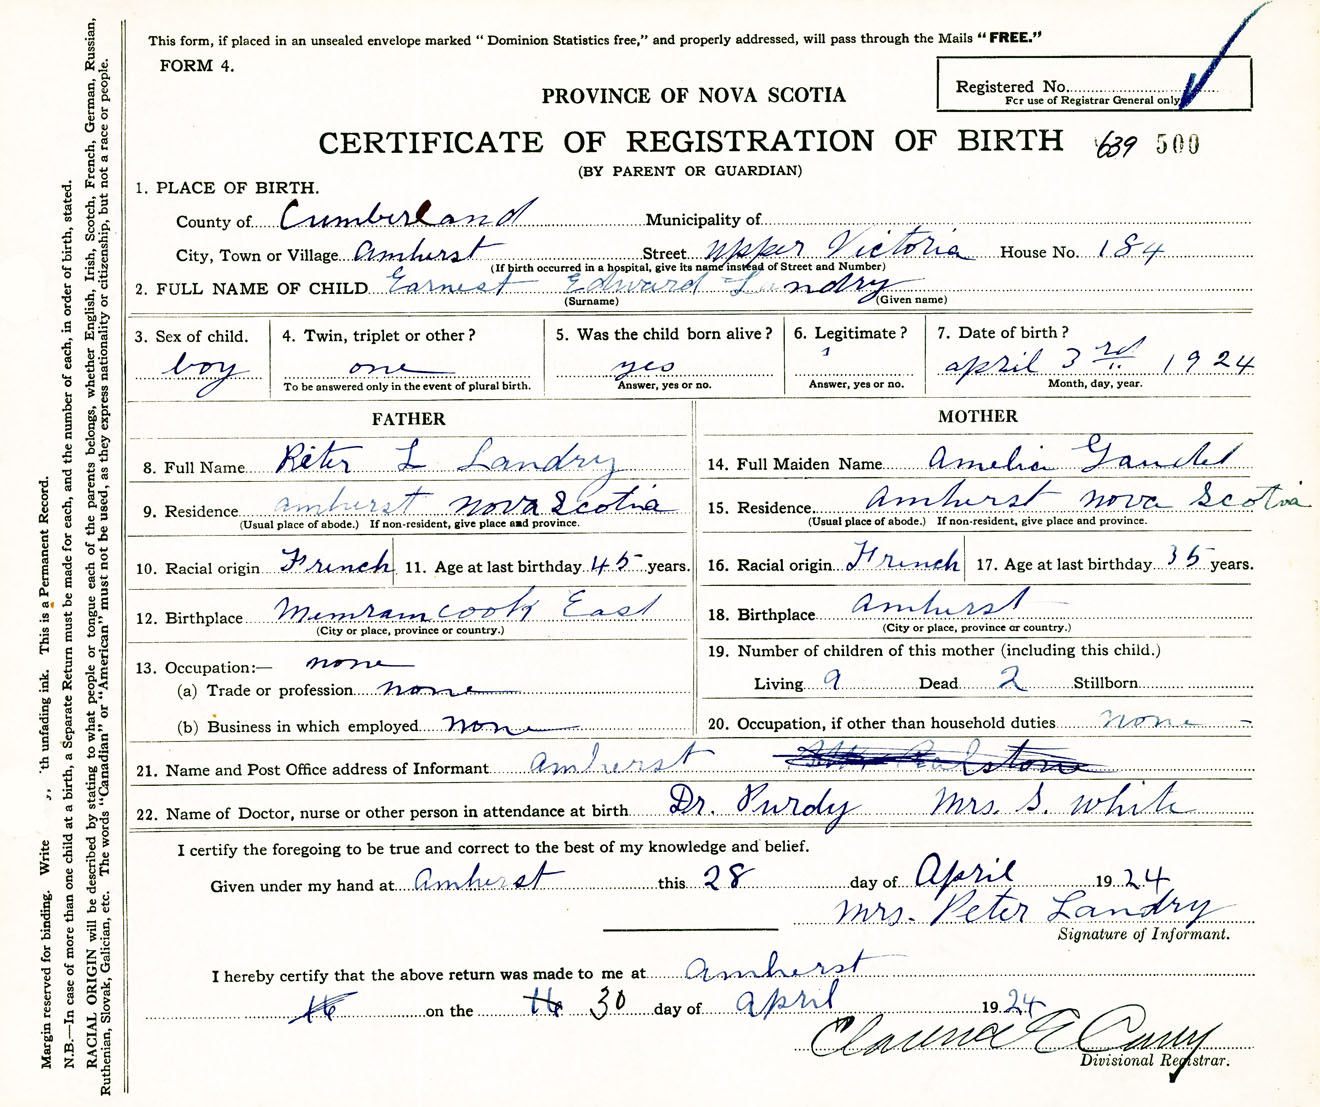 This form, if placed in an unsealed envelope marked " Dominion Statistics free," and properly addressed, will pass through the Mails "FREE."
FORM 4.
Registered No.
For use of Registrar General only
PROVINCE OF NOVA SCOTIA
CERTIFICATE OF REGISTRATION OF BIRTH 639 500
(BY PARENT OR GUARDIAN)
1. PLACE OF BIRTH.
County of Cumberland Municipality of
City, Town or Village Amherst Street Upper Victoria House No. 184
(If birth occurred in a hospital, give its name instead of Street and Number)
2. FULL NAME OF CHILD Earnest Edward Landry
(Surname) (Given name)
3. Sex of child. 4. Twin, triplet or other? 5. Was the child born alive? 6. Legitimate? 7. Date of birth?
boy one yes april 3rd 1924
To be answered only in the event of plural birth. Answer, yes or no. Answer, yes or no. Month, day, year.
FATHER MOTHER
8. Full Name Peter L Landry 14. Full Maiden Name Amelia Gaudet
9. Residence amherst nova Scotia 15. Residence. Amherst nova Scotia
(Usual place of abode.) If non-resident, give place and province. (Usual place of abode.) If non-resident, give place and province.
10. Racial origin French 11. Age at last birthday 45 years. 16. Racial origin French 17. Age at last birthday 35 years.
12. Birthplace Memramcook East 18. Birthplace amherst
(City or place, province or country.) (City or place, province or country.)
13. Occupation:— none 19. Number of children of this mother (including this child.)
(a) Trade or profession none Living 9 Dead 2 Stillborn
(b) Business in which employed none 20. Occupation, if other than household duties none -
21. Name and Post Office address of Informant Amherst
22. Name of Doctor, nurse or other person in attendance at birth Dr. Purdy Mrs. S. White
I certify the foregoing to be true and correct to the best of my knowledge and belief.
Given under my hand at Amherst this 28 day of April 1924
Mrs. Peter Landry
Signature of Informant.
I hereby certify that the above return was made to me at Amherst
16 on the 16 30 day of april 1924
Clarence E Casey
Divisional Registrar.
Margin reserved for binding. Write th unfading ink. This is a Permanent Record.
N.B.—In case of more than one child at a birth, a Separate Return must be made for each, and the number of each, in order of birth, stated.
RACIAL ORIGIN will be described by stating to what people or tongue each of the parents belongs, whether English, Irish, Scotch, French, German, Russian,
Ruthenian, Slovak, Galician, etc. The words "Canadian" or "American" must not be used, as they express nationality or citizenship, but not a race or people.